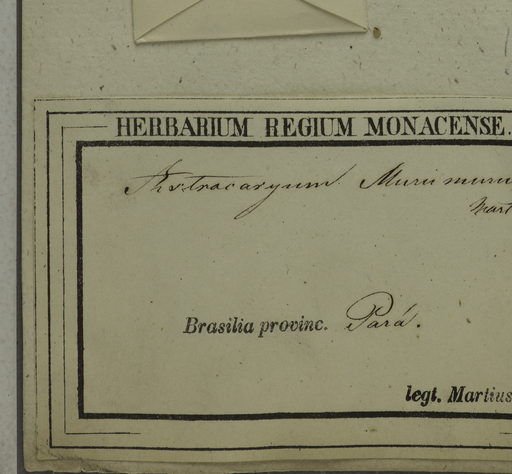 HERBARIUM REGIUM MONACENSE.
Astrocaryum Murumuru
Mart
Brasilia provinc. Pará.
legt. Martius